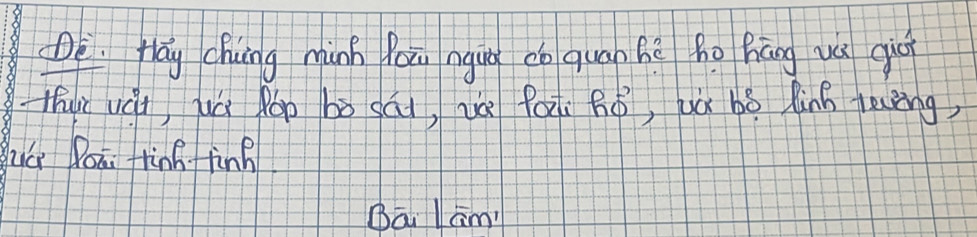 Đề. Hãy chứng minh loài người có quan hệ họ hàng với giới
thực vật, với lớp bò sát, với loài hổ, với bộ linh trưởng,
với loài tinh tinh.
Bài làm